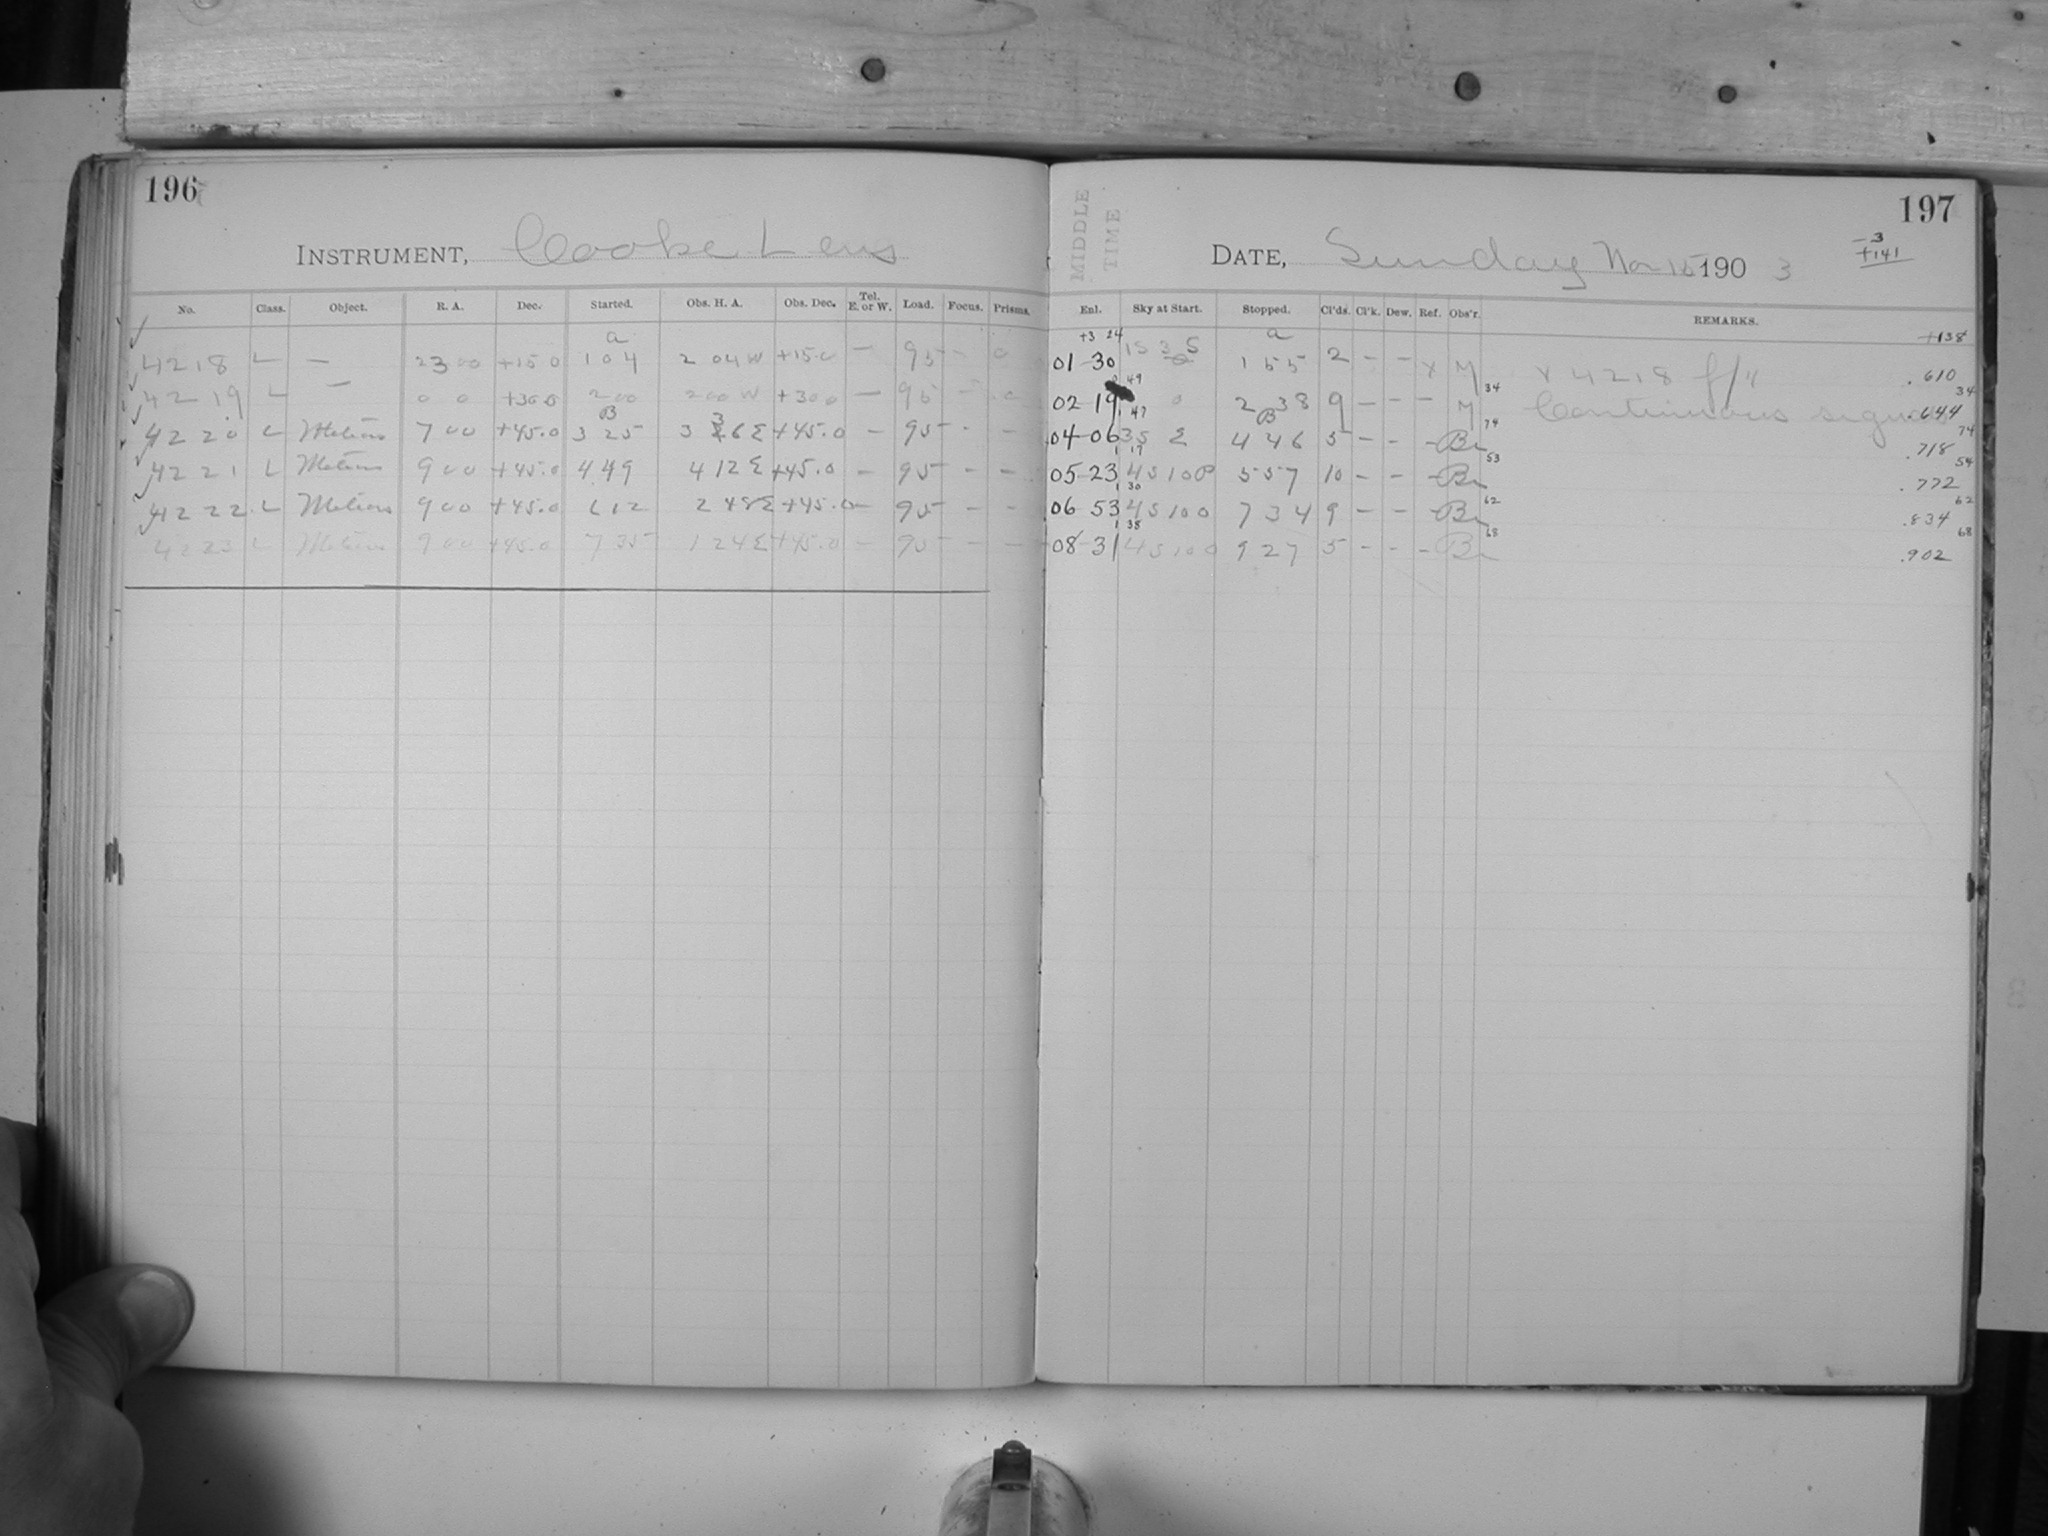 196
INSTRUMENT, Cooke Lens
No. Class. Object. R. A. Dec. Started. Obs. H. A. Obs. Dec. Tel. E. or W. Load. Focus. Prisms.
a
4218 L — 23 00 +15.0 1 04 2 04 W +15.0 — 95 - 0
4219 L — 0 0 +30.0 2 00 2 00 W +30.0 — 95 - 0
B
4220 L Meteors 7 00 +45.0 3 25 3 36 E +45.0 — 95 - —
4221 L Meteors 9 00 +45.0 4 49 4 12 E +45.0 — 95 - —
4222 L Meteors 9 00 +45.0 6 12 2 48 E +45.0 — 95 - —
4223 L Meteors 9 00 +45.0 7 35 1 24 E +45.0 — 95 - —
197
MIDDLE
TIME
DATE, Sunday Nov 15 1903
-3
+141
Enl. Sky at Start. Stopped. Cl'ds. Cl'k. Dew. Ref. Obs'r. REMARKS.
+3 24 a +138
01-30 15 3 5 1 55 2 - - x M x 4218 f/4 .610
49 34 34
02-19 0 2 38 9 - - - M Continuous .644
47 B 74 74
04-06 35 E 4 46 5 - - - Br .718
1 17 53 54
05-23 45 100 5 57 10 - - - Br .772
1 30 62 62
06 53 45 100 7 34 9 - - - Br .834
1 38 68 68
08-31 45 100 9 27 5 - - - Br .902